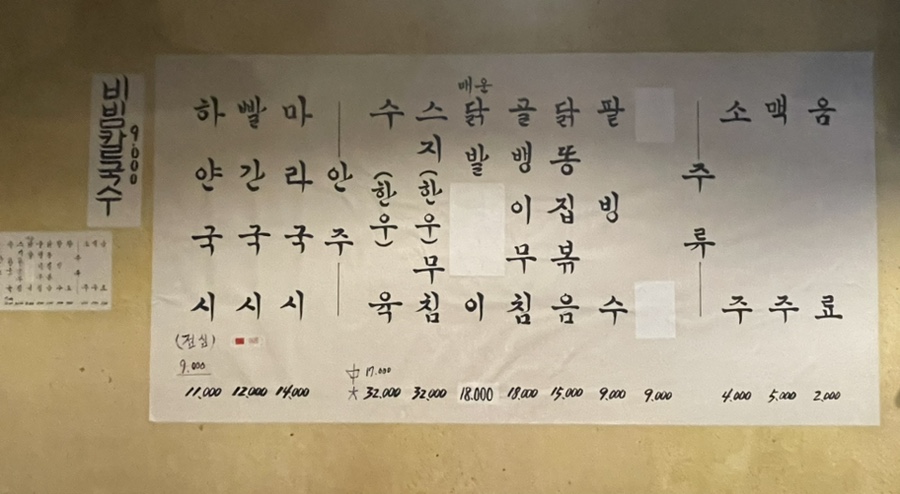 비빔칼국수
9.000
하얀국시
(점심)
9.000
11.000
빨간국시
12.000
마라국시
14.000
안주
수(한우)육
中 17.000
大 32.000
스지(한우)무침
32.000
매운
닭발이
18.000
골뱅이무침
18.000
닭똥집볶음
15.000
팥빙수
9.000
9.000
주류
소주
4.000
맥주
5.000
음료
2.000